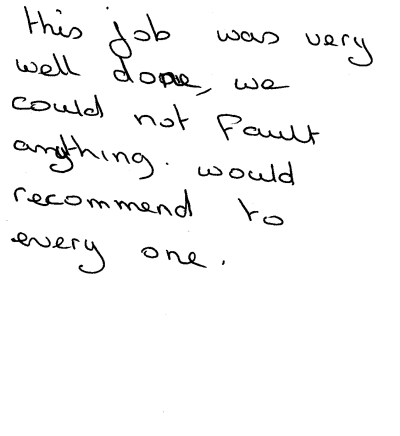 this job was very
well done, we
could not fault
anything. would
recommend to
every one.